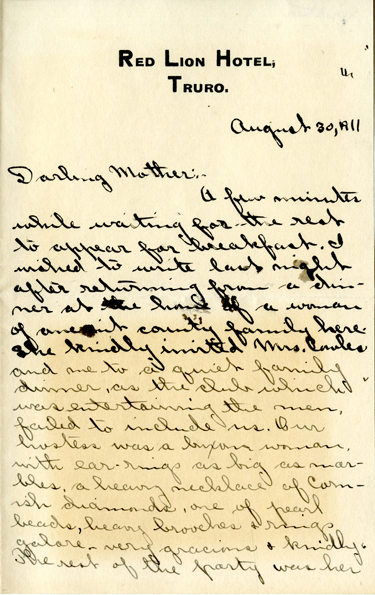 RED LION HOTEL,
TRURO.
August 30, 1911
Darling Mother:-
A few minutes
while waiting for the rest
to appear for breakfast. I
wished to write last night
after returning from a din-
ner at the home of a woman
of ancient county family here.
She kindly invited Mrs. Cowles
and me to a quiet family
dinner, as the club which
was entertaining the men,
failed to include us. Our
hostess was a buxom woman,
with ear-rings as big as mar-
bles, a heavy necklace of Corn-
ish diamonds, one of pearl
beads, heavy brooches & rings
galore - very gracious & kindly.
The rest of the party was her